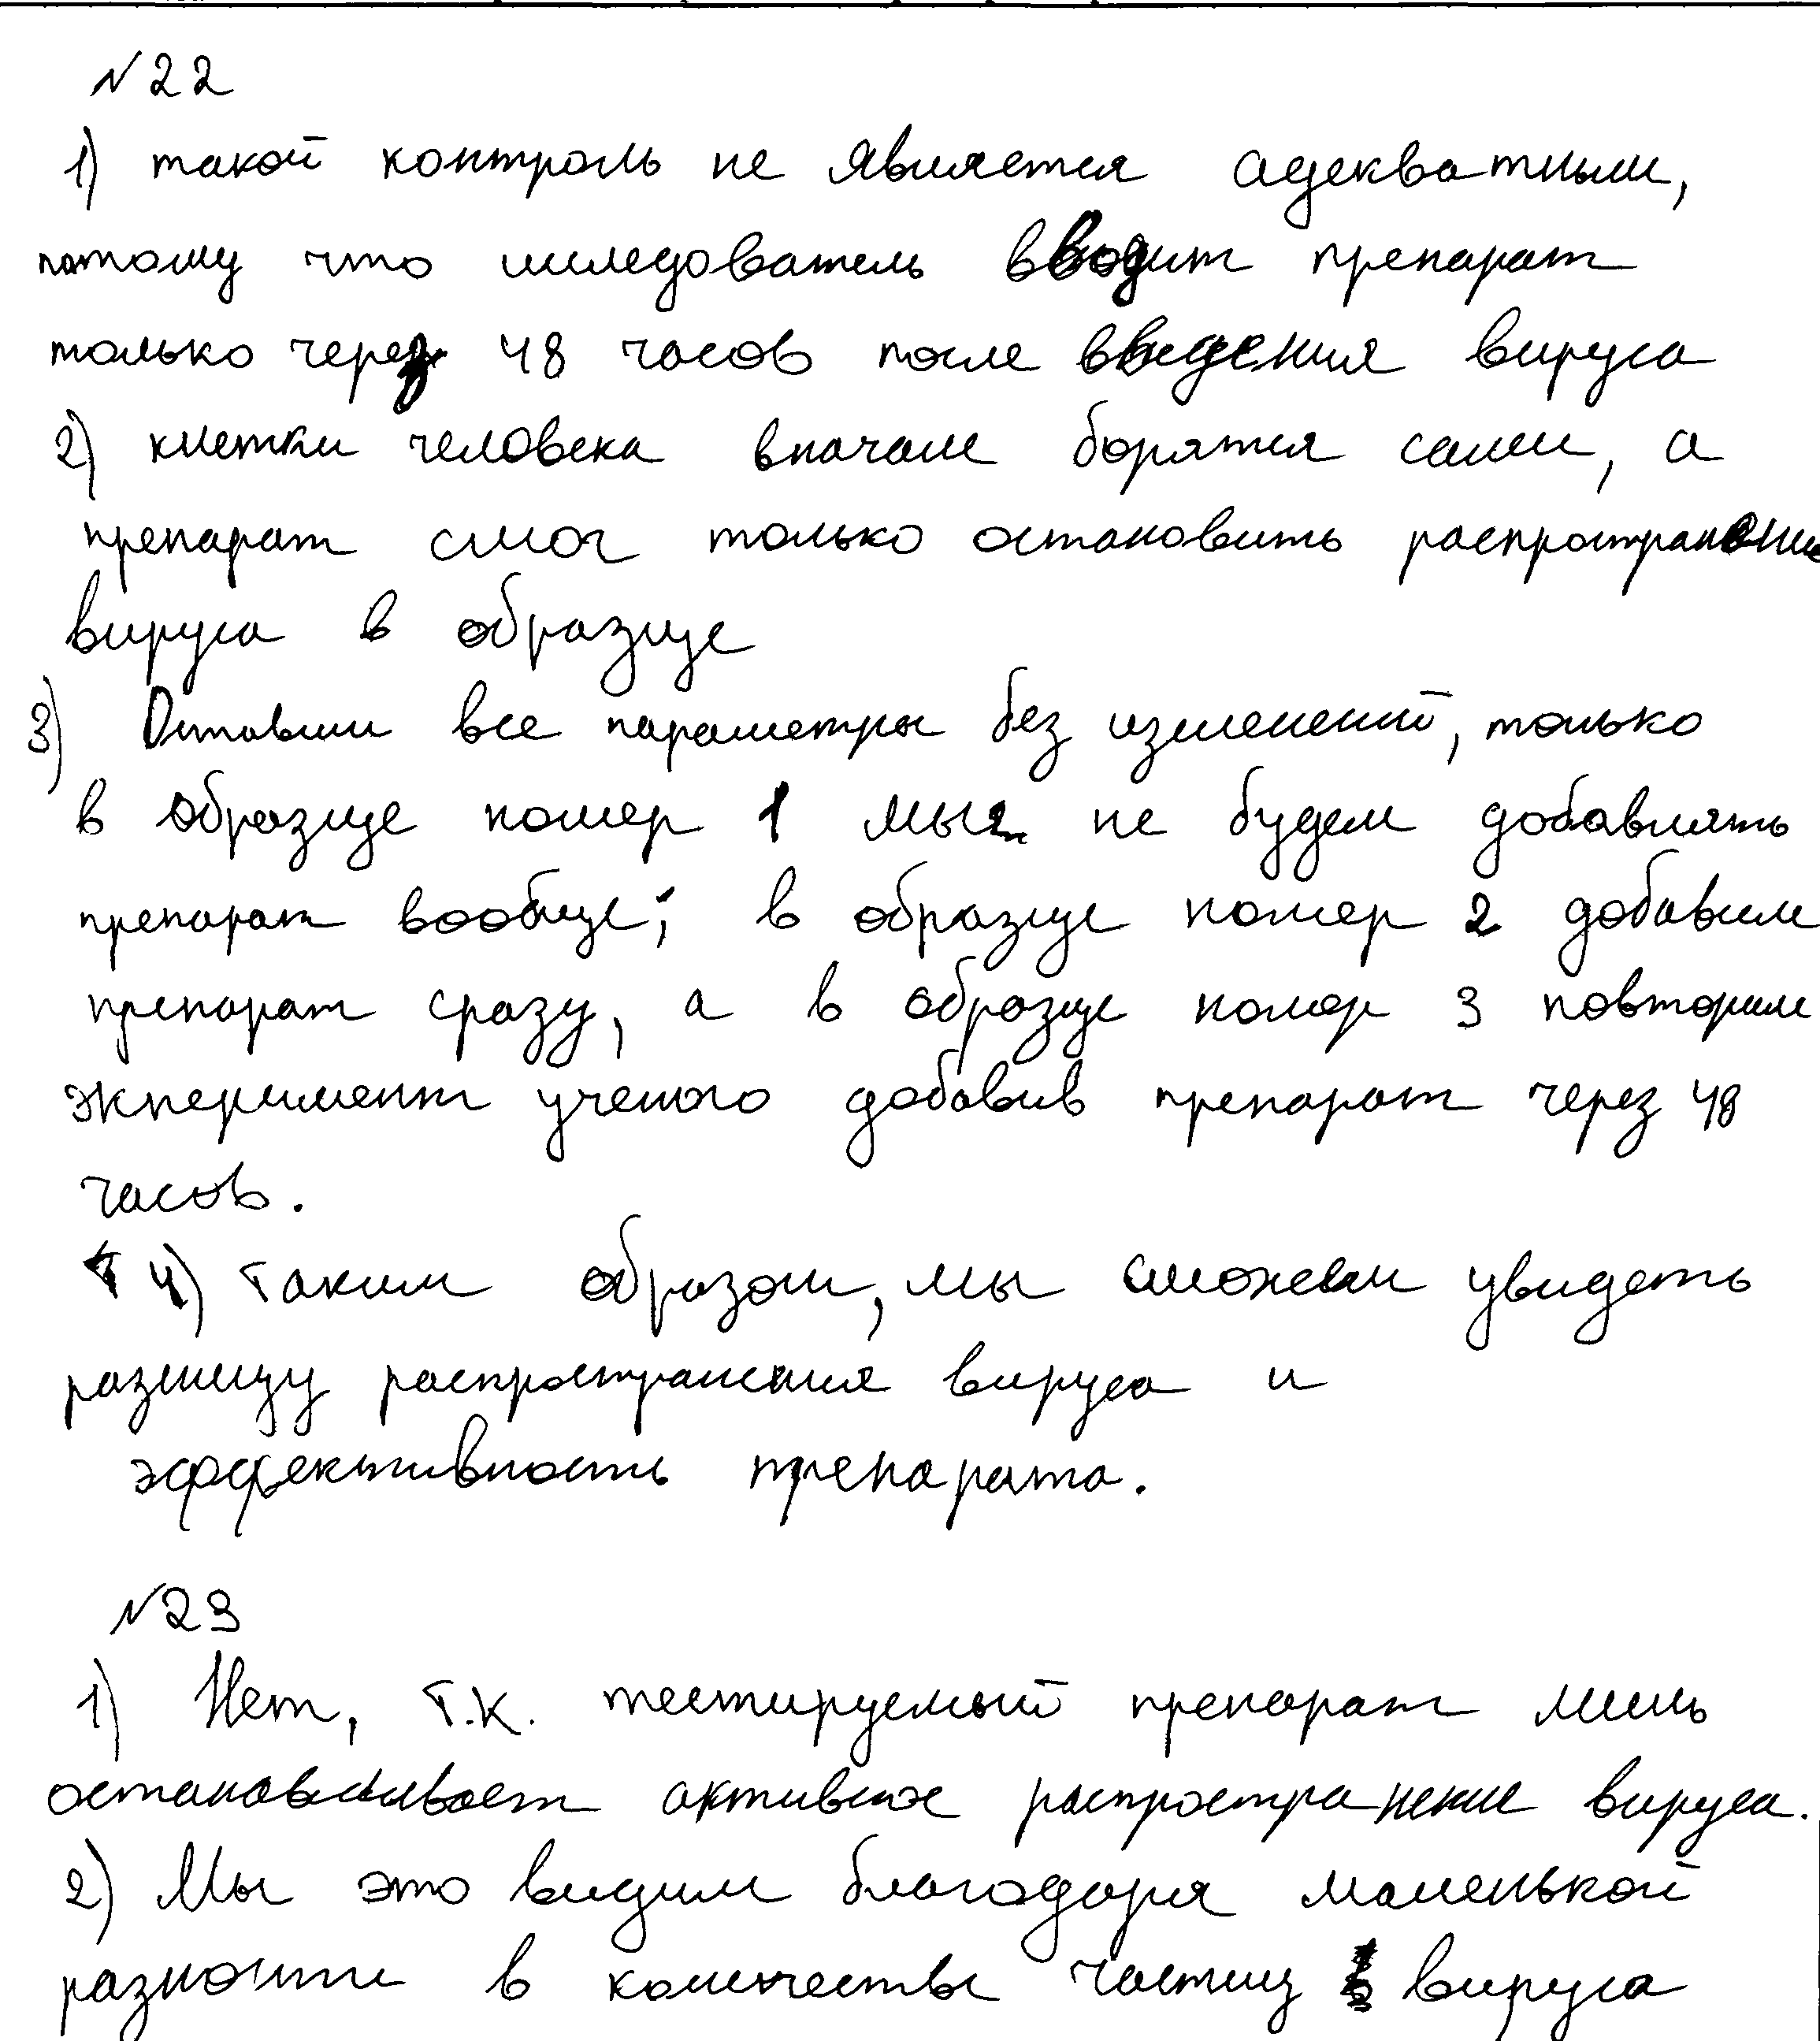 №22
1) такой контроль не является адекватным,
потому что исследователь вводит препарат
только через 48 часов после введения вируса
2) клетки человека вначале борятся сами, а
препарат смог только остановить распространение
вируса в образце
3) Оставим все параметры без изменений, только
в образце номер 1 мы не будем добавлять
препарат вообще; в образце номер 2 добавим
препарат сразу, а в образце номер 3 повторим
эксперимент ученого добавив препарат через 48
часов.
4) Таким образом, мы сможем увидеть
разницу распространения вируса и
эффективность препарата.
№23
1) Нет, т.к. тестируемый препарат лишь
останавливает активное распространение вируса.
2) Мы это видим благодаря маленькой
разности в количестве частиц вируса